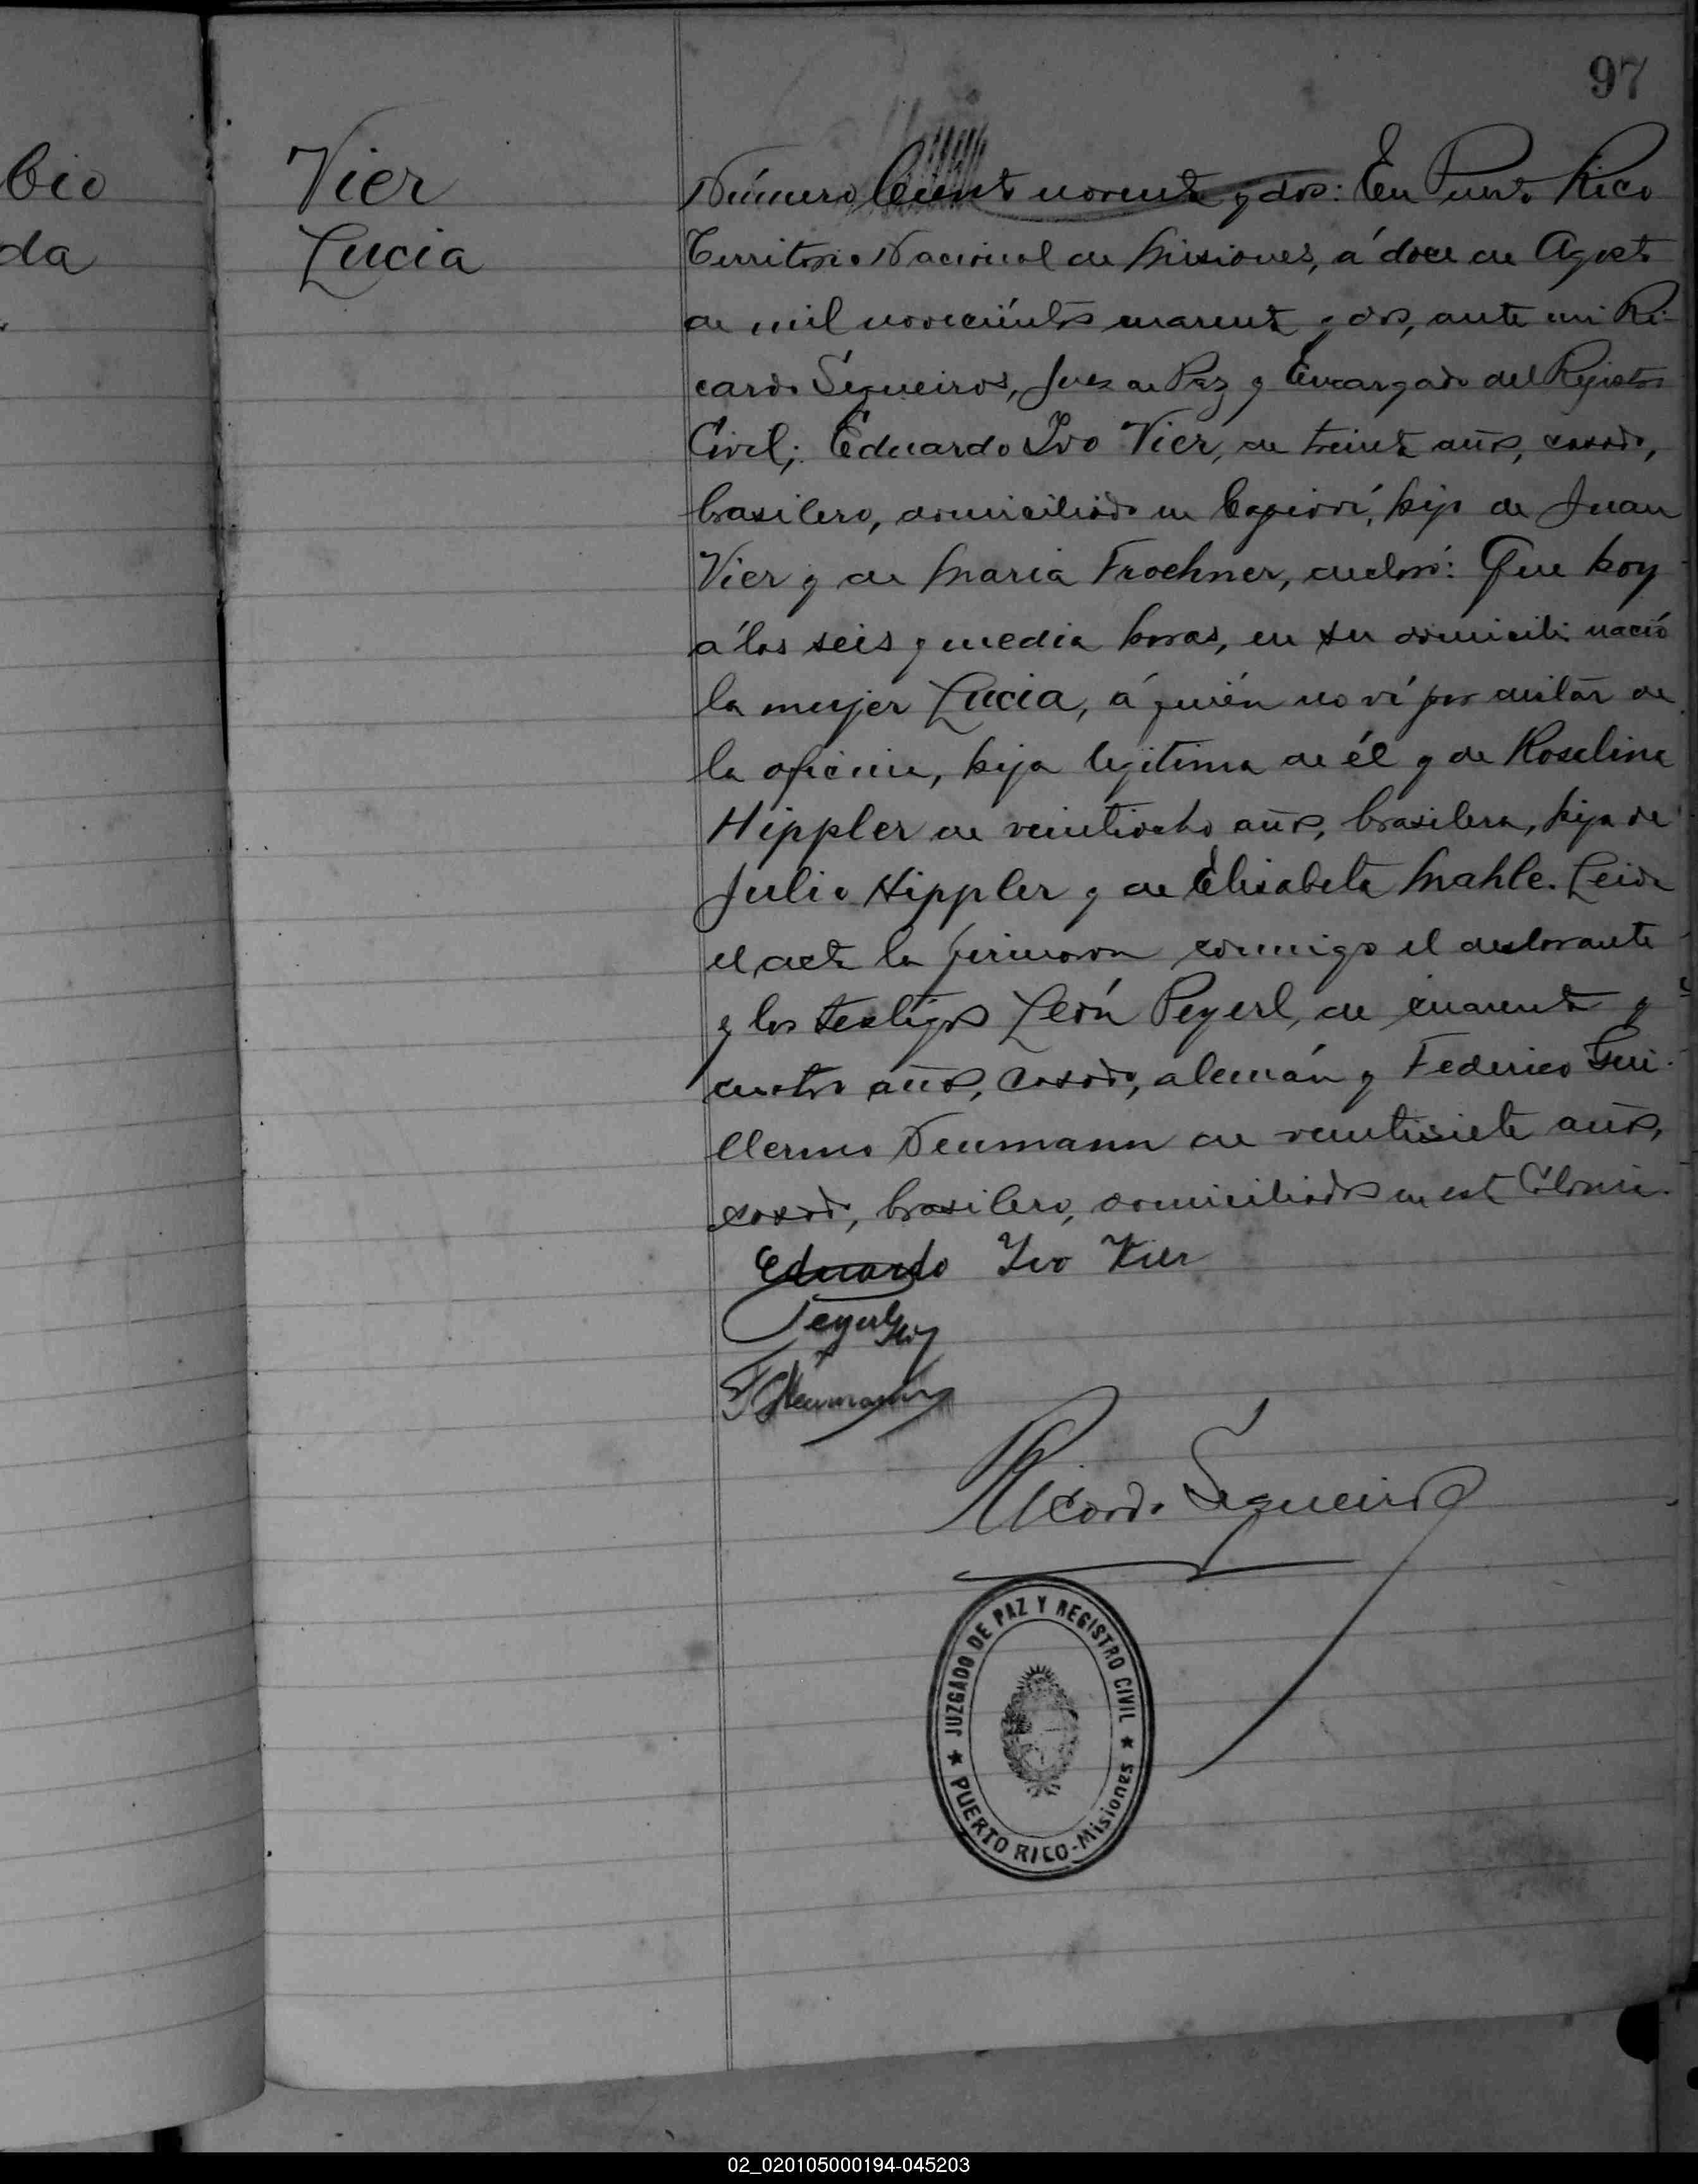 97
bio
da
Vier
Lucia
Número Ciento noventa y dos: En Puerto Rico
Territorio Nacional de Misiones, á doce de Agosto
de mil novecientos cuarenta y dos, ante mi Ri-
cardo Sequeiros, Juez de Paz y Encargado del Rejistro
Civil; Eduardo Ivo Vier, de treinta años, casado,
brasilero, domiciliado en Capioví, hijo de Juan
Vier y de Maria Froehner, declaró: Que hoy
á las seis y media horas, en su domicilio nació
la mujer Lucia, á quién no ví por distar de
la oficina, hija lejitima de él y de Roselina
Hippler de veintiocho años, brasilera, hija de
Julio Hippler y de Elisabeta Mahle. Leida
el acta la firmaron conmigo el declarante
y los testigos León Peyerl, de cuarenta y
cuatro años, casado, alemán y Federico Gui-
llermo Neumann de veintisiete años,
casado, brasilero, domiciliados en esta Colonia.
Eduardo Ivo Vier
Peyerl
F G Neumann
Ricardo Sequeiros
JUZGADO DE PAZ Y REGISTRO CIVIL
★ PUERTO RICO-Misiones ★
02_020105000194-045203